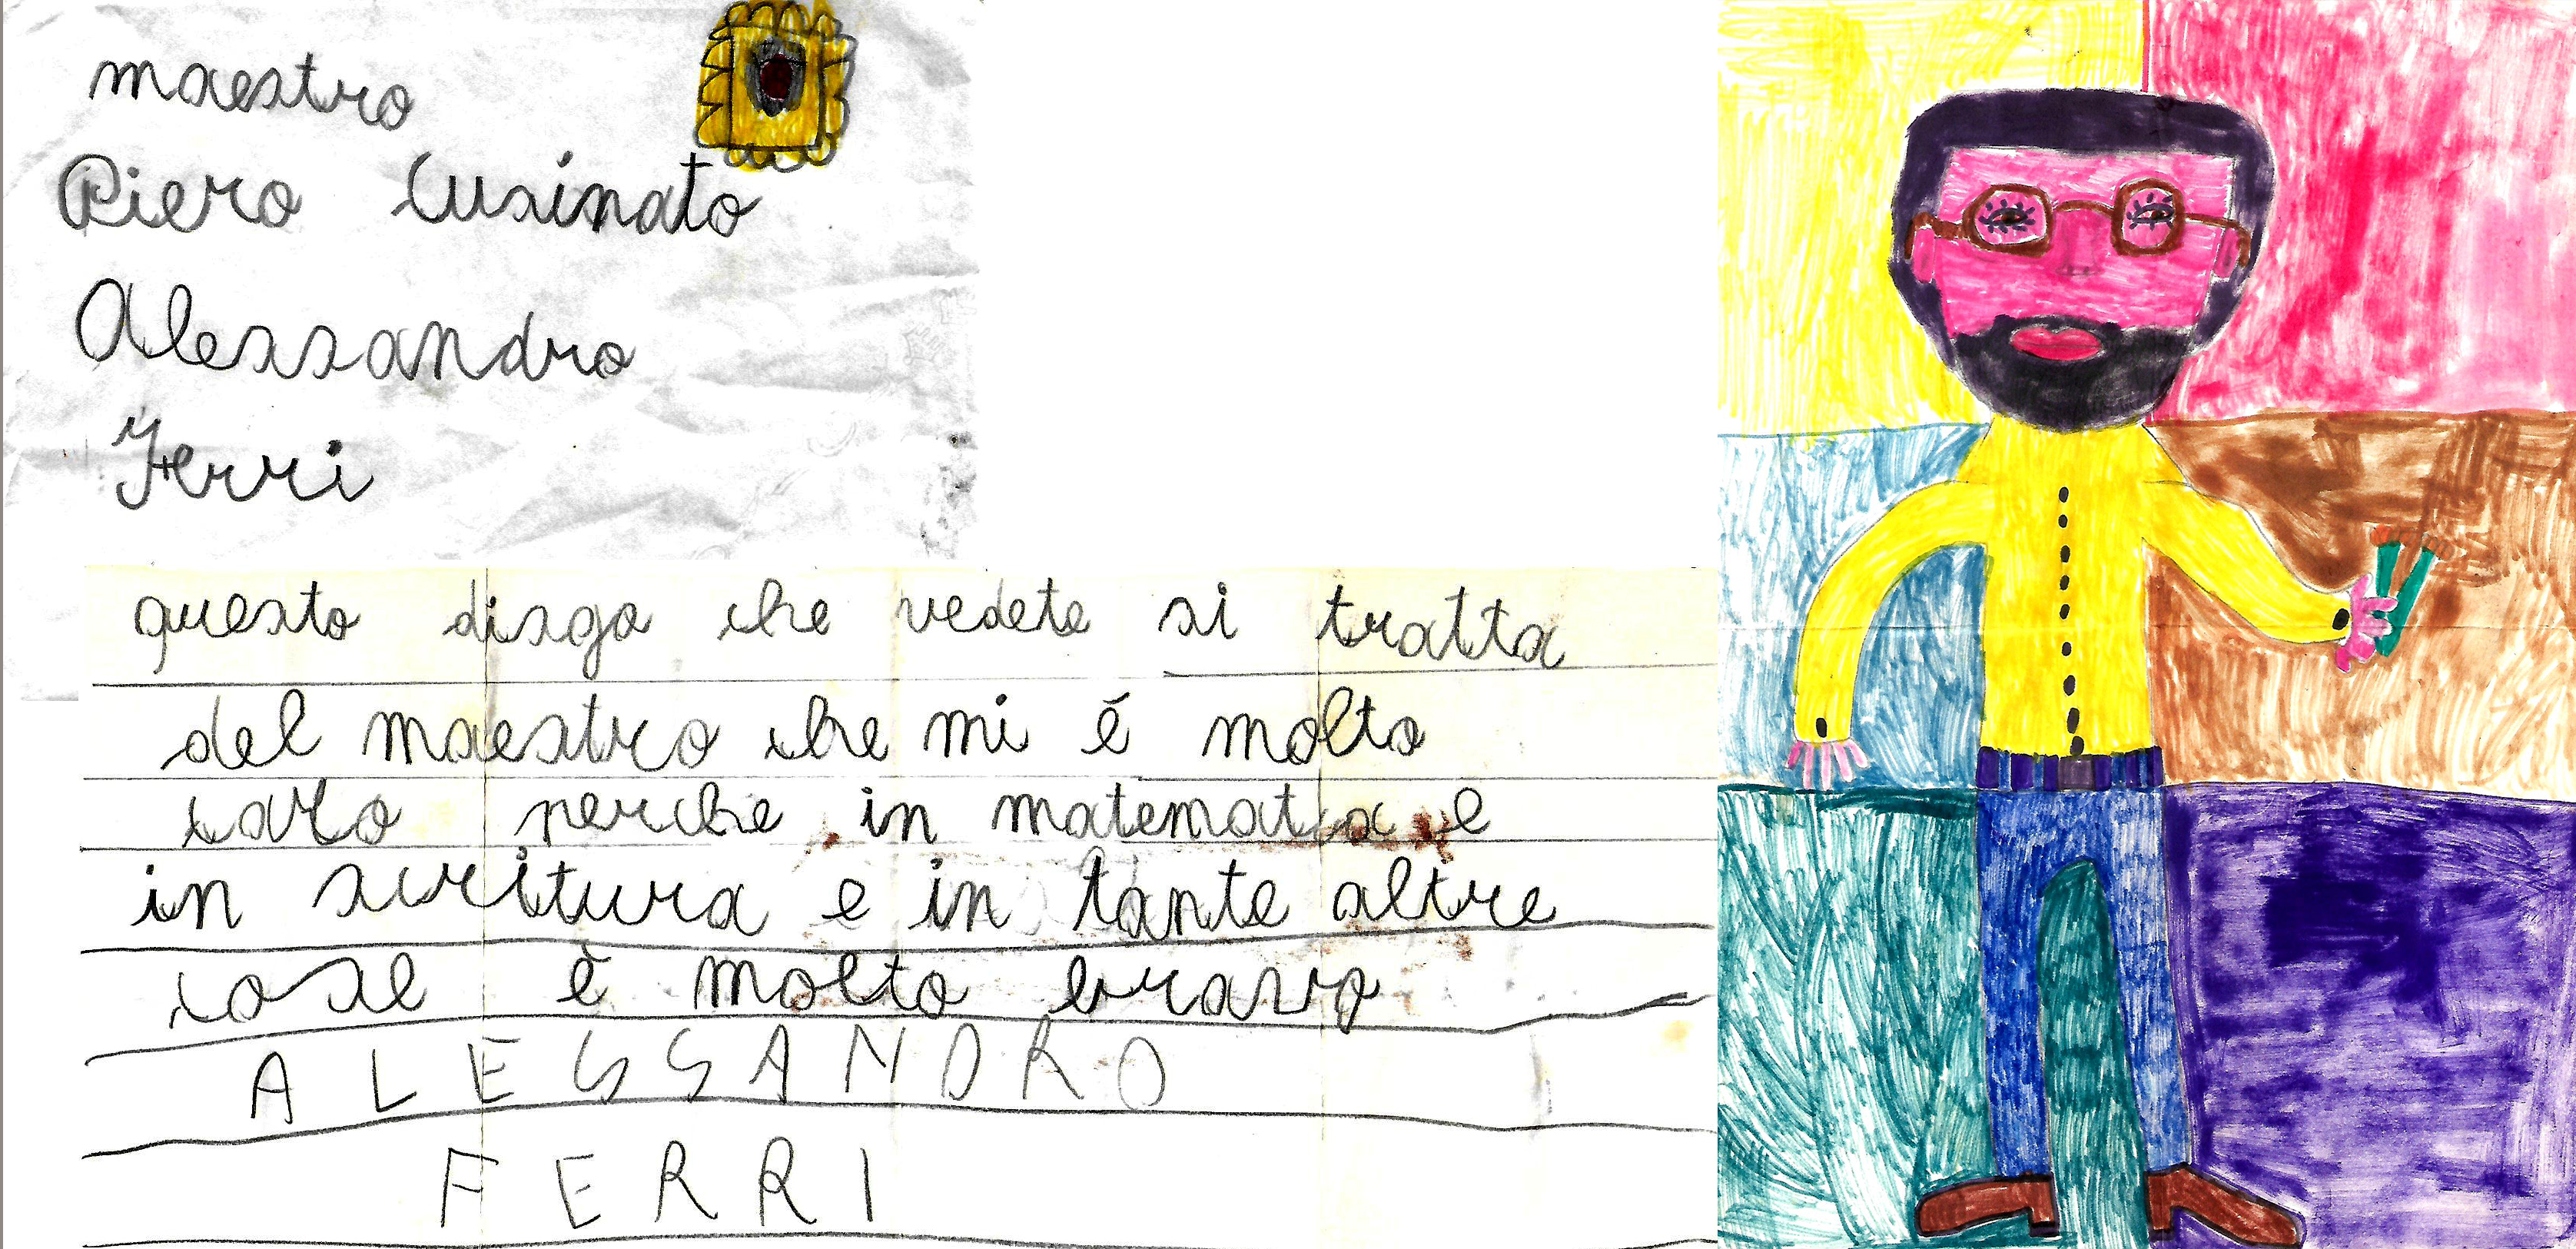 maestro
Piero Cusinato
Alessandro
Ferri
questo disgo che vedete si tratta
del maestro che mi é molto
caro perche in matematica e
in scritura e in tante altre
cose è molto bravo
ALESSANDRO
FERRI